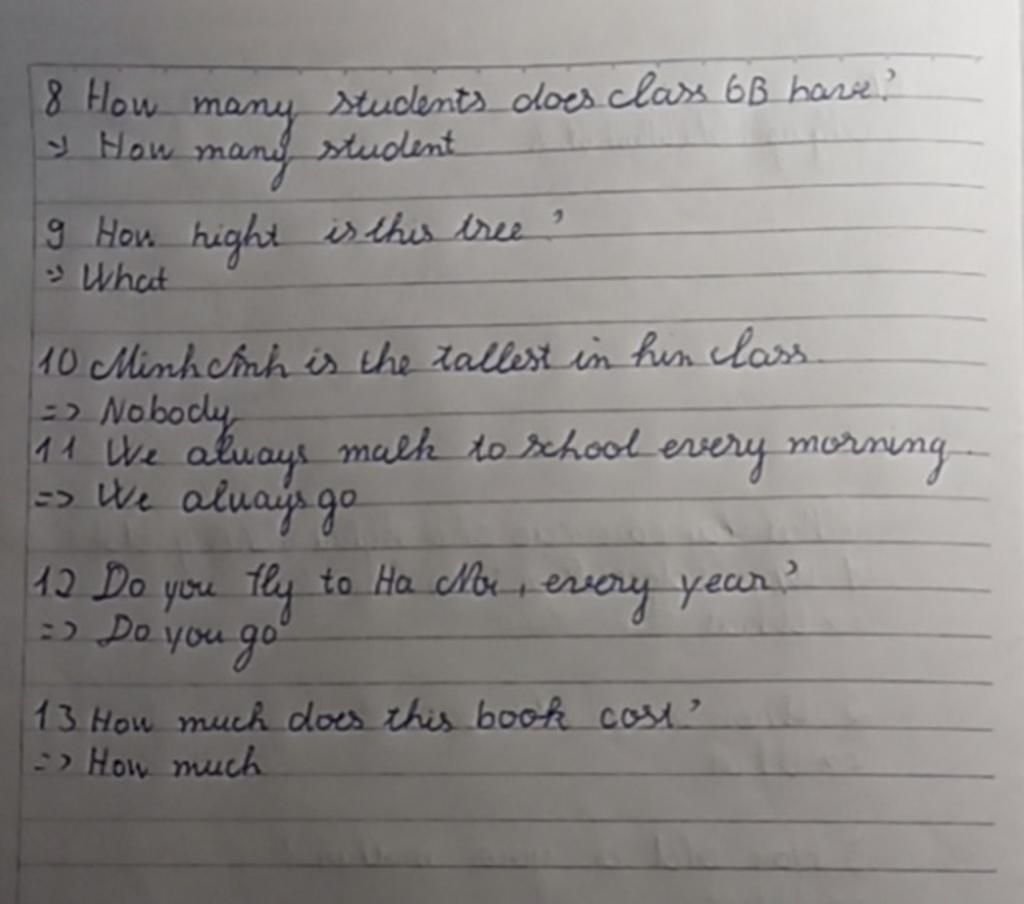 8 How many students does class 6B have?
=> How many student
9 How hight is this tree?
=> What
10 Minh Anh is the tallest in hin class
=> Nobody
11 We always walk to school every morning.
=> We always go
12 Do you fly to Ha Noi, every year?
=> Do you go
13 How much does this book cost?
=> How much